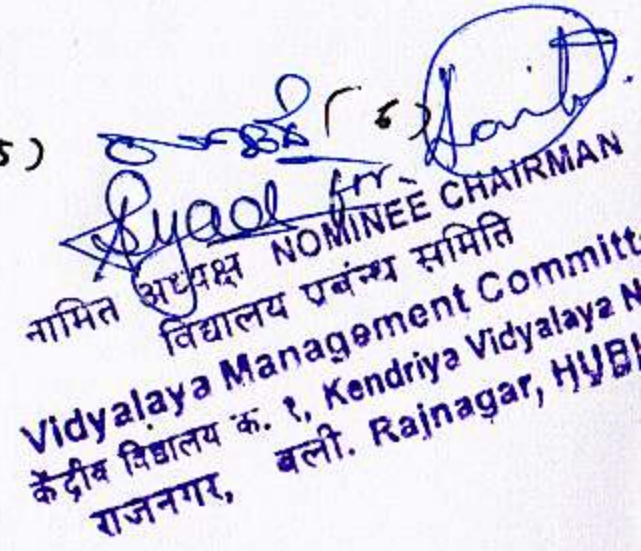 5) (6)
for
नामित अध्यक्ष NOMINEE CHAIRMAN
विद्यालय प्रबंन्ध समिति
Vidyalaya Management Committ
केंद्रीय विद्यालय क. १, Kendriya Vidyalaya N
राजनगर, बली. Rajnagar, HUBL